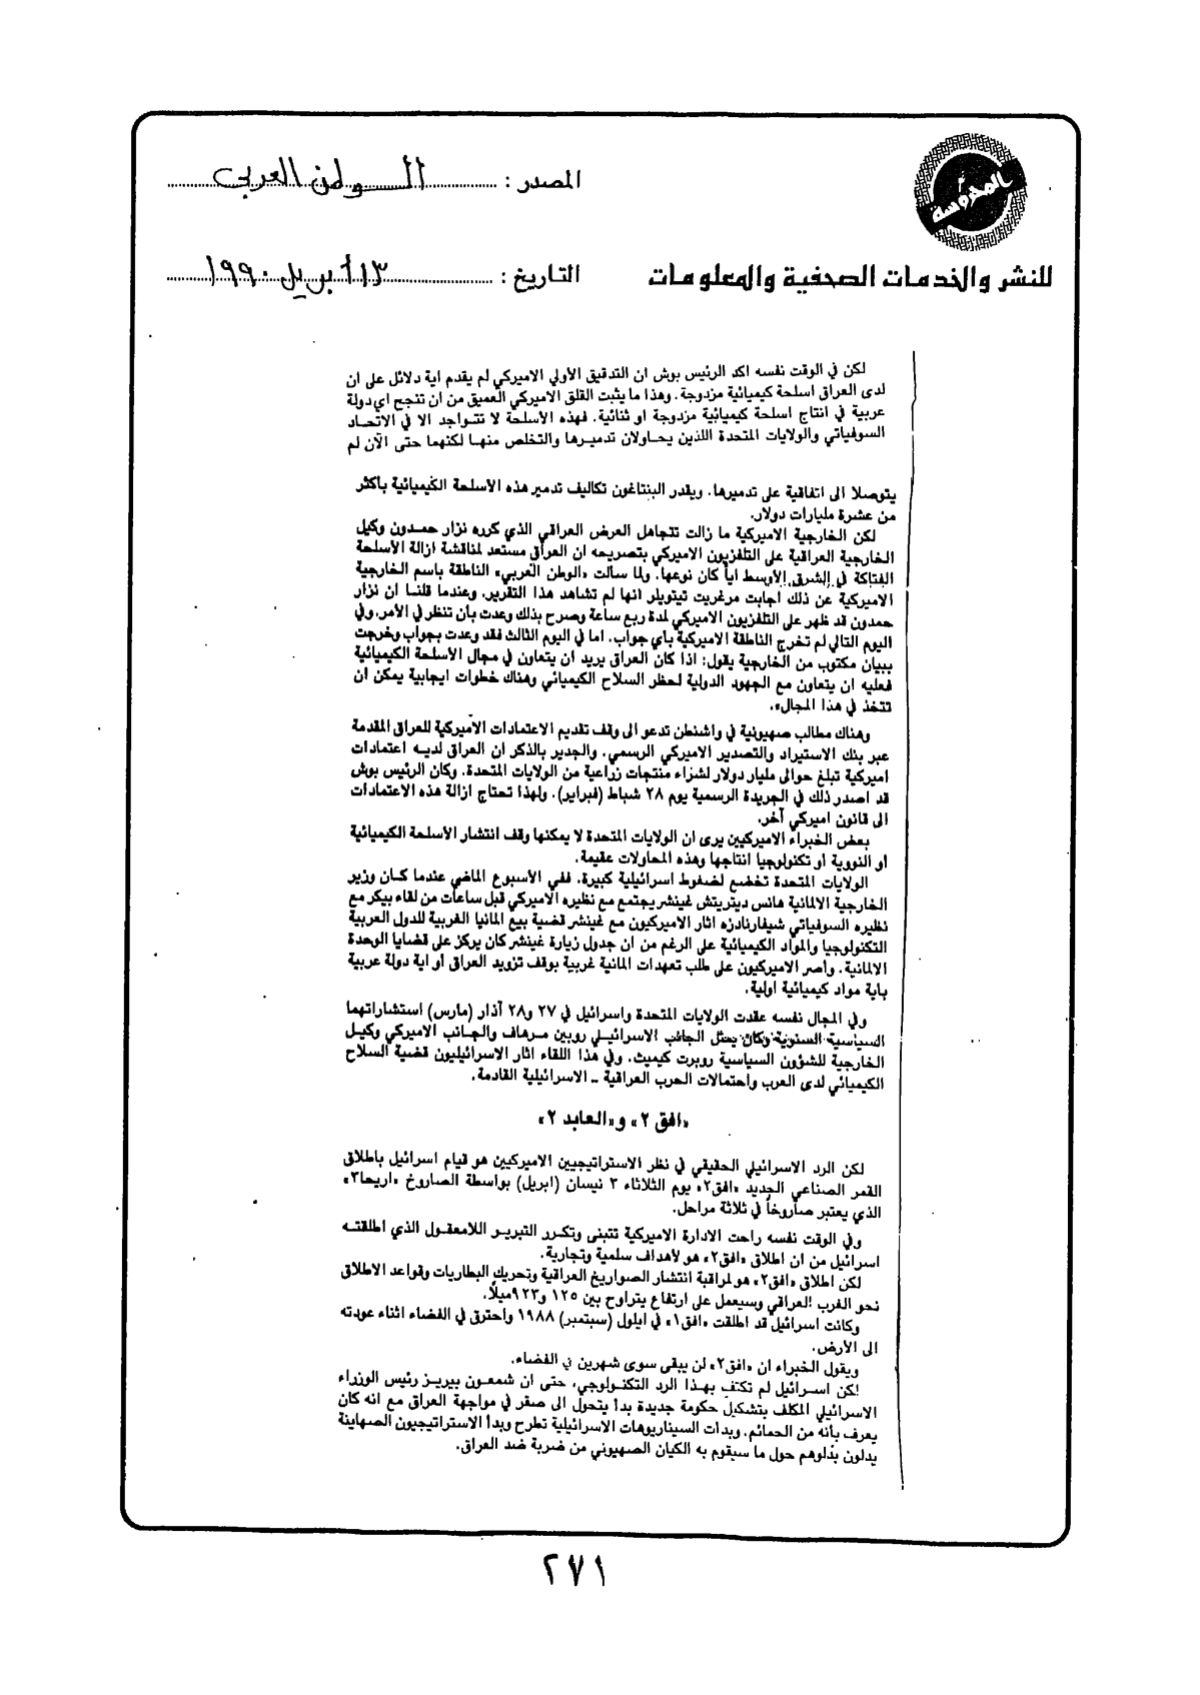 المحروسة
للنشر والخدمات الصحفية والمعلومات
المصدر : الوطن العربي
التاريخ : ١٣ ابريل ١٩٩٠
لكن في الوقت نفسه اكد الرئيس بوش ان التدقيق الأولي الاميركي لم يقدم اية دلائل على ان
لدى العراق اسلحة كيميائية مزدوجة. وهذا ما يثبت القلق الاميركي العميق من ان تنجح اي دولة
عربية في انتاج اسلحة كيميائية مزدوجة او ثنائية. فهذه الأسلحة لا تتواجد الا في الاتحاد
السوفياتي والولايات المتحدة اللذين يحاولان تدميرها والتخلص منها لكنهما حتى الآن لم
يتوصلا الى اتفاقية على تدميرها. ويقدر البنتاغون تكاليف تدمير هذه الأسلحة الكيميائية باكثر
من عشرة مليارات دولار.
لكن الخارجية الاميركية ما زالت تتجاهل العرض العراقي الذي كرره نزار حمدون وكيل
الخارجية العراقية على التلفزيون الاميركي بتصريحه ان العراق مستعد لمناقشة ازالة الأسلحة
الفتاكة في الشرق الأوسط اياً كان نوعها. ولما سألت «الوطن العربي» الناطقة باسم الخارجية
الاميركية عن ذلك اجابت مرغريت تيتويلر انها لم تشاهد هذا التقرير. وعندما قلنا ان نزار
حمدون قد ظهر على التلفزيون الاميركي لمدة ربع ساعة وصرح بذلك وعدت بأن تنظر في الأمر. وفي
اليوم التالي لم تخرج الناطقة الاميركية بأي جواب. اما في اليوم الثالث فقد وعدت بجواب وخرجت
ببيان مكتوب من الخارجية يقول: اذا كان العراق يريد ان يتعاون في مجال الأسلحة الكيميائية
فعليه ان يتعاون مع الجهود الدولية لحظر السلاح الكيميائي وهناك خطوات ايجابية يمكن ان
تتخذ في هذا المجال».
وهناك مطالب صهيونية في واشنطن تدعو الى وقف تقديم الاعتمادات الأميركية للعراق المقدمة
عبر بنك الاستيراد والتصدير الاميركي الرسمي. والجدير بالذكر ان العراق لديه اعتمادات
اميركية تبلغ حوالى مليار دولار لشراء منتجات زراعية من الولايات المتحدة. وكان الرئيس بوش
قد اصدر ذلك في الجريدة الرسمية يوم ٢٨ شباط (فبراير). ولهذا تحتاج ازالة هذه الاعتمادات
الى قانون اميركي آخر.
بعض الخبراء الاميركيين يرى ان الولايات المتحدة لا يمكنها وقف انتشار الأسلحة الكيميائية
او النووية او تكنولوجيا انتاجها وهذه المحاولات عقيمة.
الولايات المتحدة تخضع لضغوط اسرائيلية كبيرة. ففي الأسبوع الماضي عندما كان وزير
الخارجية الالمانية هانس ديتريتش غينشر يجتمع مع نظيره الاميركي قبل ساعات من لقاء بيكر مع
نظيره السوفياتي شيفارنادزه اثار الاميركيون مع غينشر قضية بيع المانيا الغربية للدول العربية
التكنولوجيا والمواد الكيميائية على الرغم من ان جدول زيارة غينشر كان يركز على قضايا الوحدة
الالمانية. وأصر الاميركيون على طلب تعهدات المانية غربية بوقف تزويد العراق او اية دولة عربية
باية مواد كيميائية اولية.
وفي المجال نفسه عقدت الولايات المتحدة واسرائيل في ٢٧ و٢٨ آذار (مارس) استشاراتهما
السياسية السنوية وكان يمثل الجانب الاسرائيلي روبين مرهاف والجانب الاميركي وكيل
الخارجية للشؤون السياسية روبرت كيميث. وفي هذا اللقاء اثار الاسرائيليون قضية السلاح
الكيميائي لدى العرب واحتمالات الحرب العراقية ــ الاسرائيلية القادمة.
«افق ٢» و«العابد ٢»
لكن الرد الاسرائيلي الحقيقي في نظر الاستراتيجيين الاميركيين هو قيام اسرائيل باطلاق
القمر الصناعي الجديد «افق٢» يوم الثلاثاء ٣ نيسان (ابريل) بواسطة الصاروخ «اريحا٣»
الذي يعتبر صاروخاً في ثلاثة مراحل.
وفي الوقت نفسه راحت الادارة الاميركية تتبنى وتكرر التبرير اللامعقول الذي اطلقته
اسرائيل من ان اطلاق «افق٢» هو لأهداف سلمية وتجارية.
لكن اطلاق «افق٢» هو لمراقبة انتشار الصواريخ العراقية وتحريك البطاريات وقواعد الاطلاق
نحو الغرب العراقي وسيعمل على ارتفاع يتراوح بين ١٢٥ و٩٢٣ميلاً.
وكانت اسرائيل قد اطلقت «افق١» في ايلول (سبتمبر) ١٩٨٨ واحترق في الفضاء اثناء عودته
الى الأرض.
ويقول الخبراء ان «افق٢» لن يبقى سوى شهرين في الفضاء.
لكن اسرائيل لم تكتف بهذا الرد التكنولوجي، حتى ان شمعون بيريز رئيس الوزراء
الاسرائيلي المكلف بتشكيل حكومة جديدة بدأ يتحول الى صقر في مواجهة العراق مع انه كان
يعرف بأنه من الحمائم. وبدأت السيناريوهات الاسرائيلية تطرح وبدأ الاستراتيجيون الصهاينة
يدلون بدلوهم حول ما سيقوم به الكيان الصهيوني من ضربة ضد العراق.
٢٧١